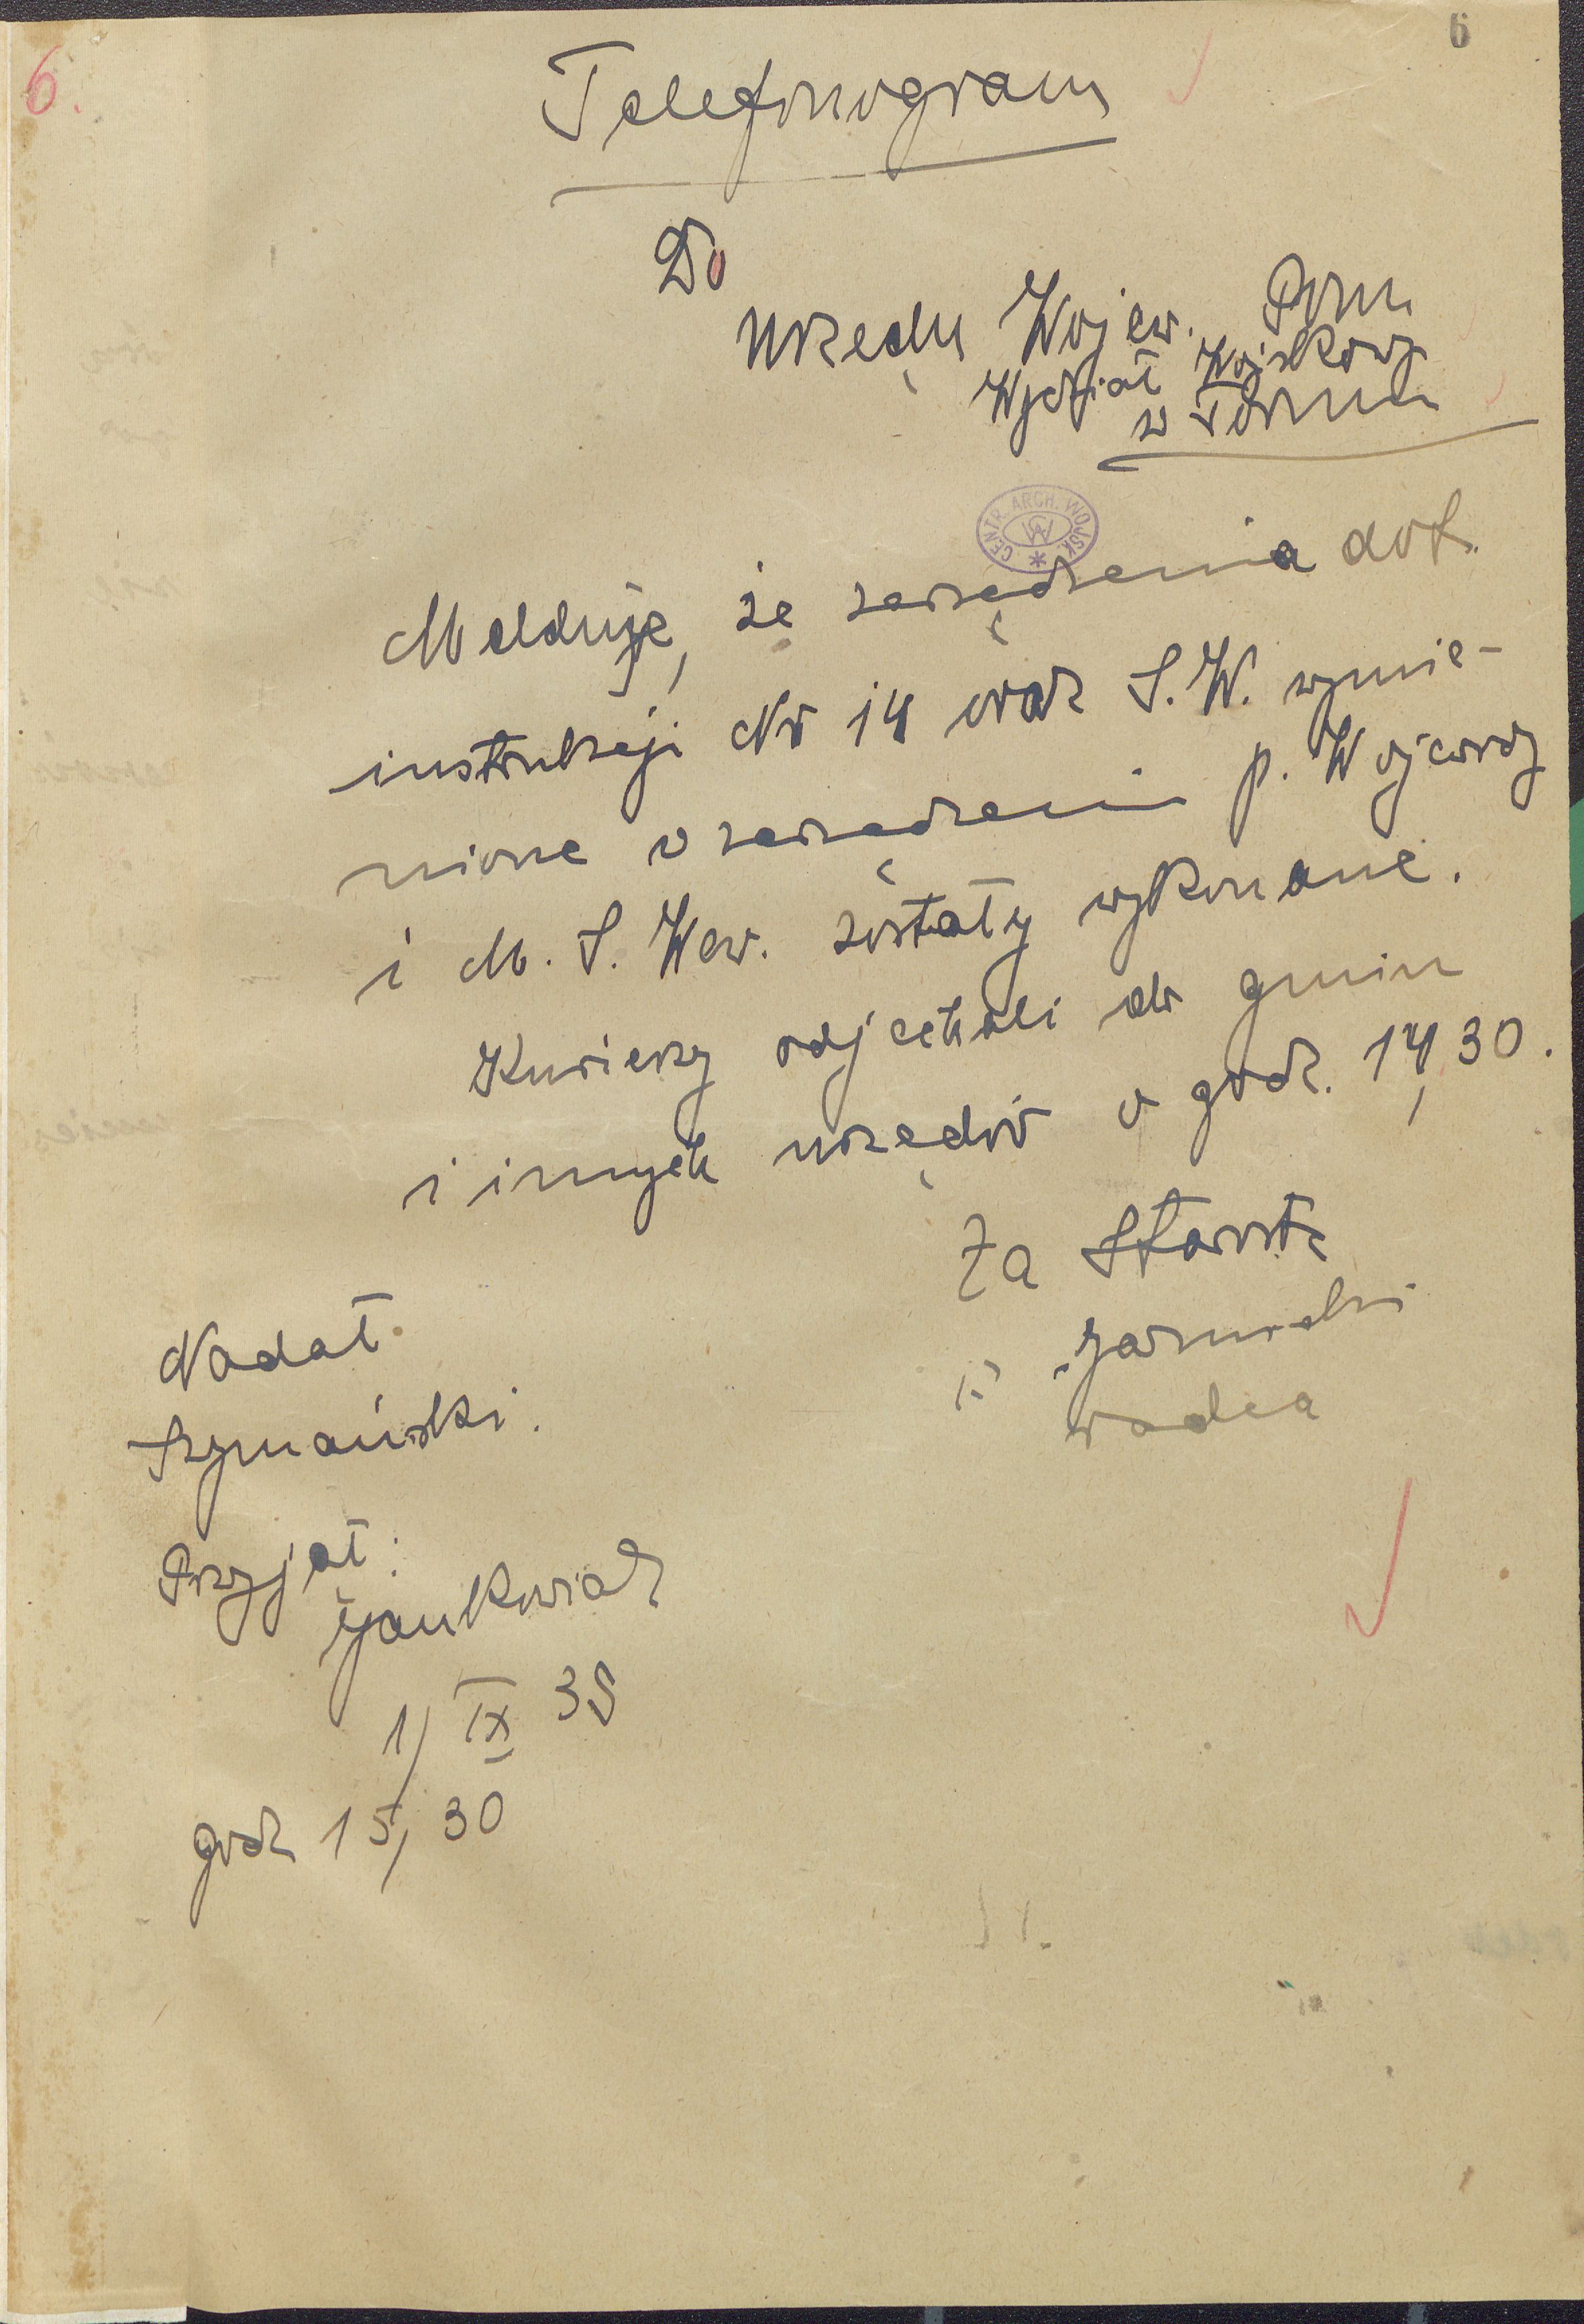 6.
6
Telefonogram
Do
Urzędu Wojew. Pom.
Wydział Wojskowy
w Toruniu
CENTR. ARCH. WOJSK.
Melduję, że zarządzenia dot.
instrukcji Nr 14 oraz S.W. wymie-
nione w zarządzeniu p. Wojewody
i M. S. Wew. zostały wykonane.
Kurierzy odjechali do gmin
i innych urzędów o godz. 14,30.
Za Starostę
radca
Nadał
Szymański.
Przyjął:
Jankowiak
1/ IX 39
godz 15,30